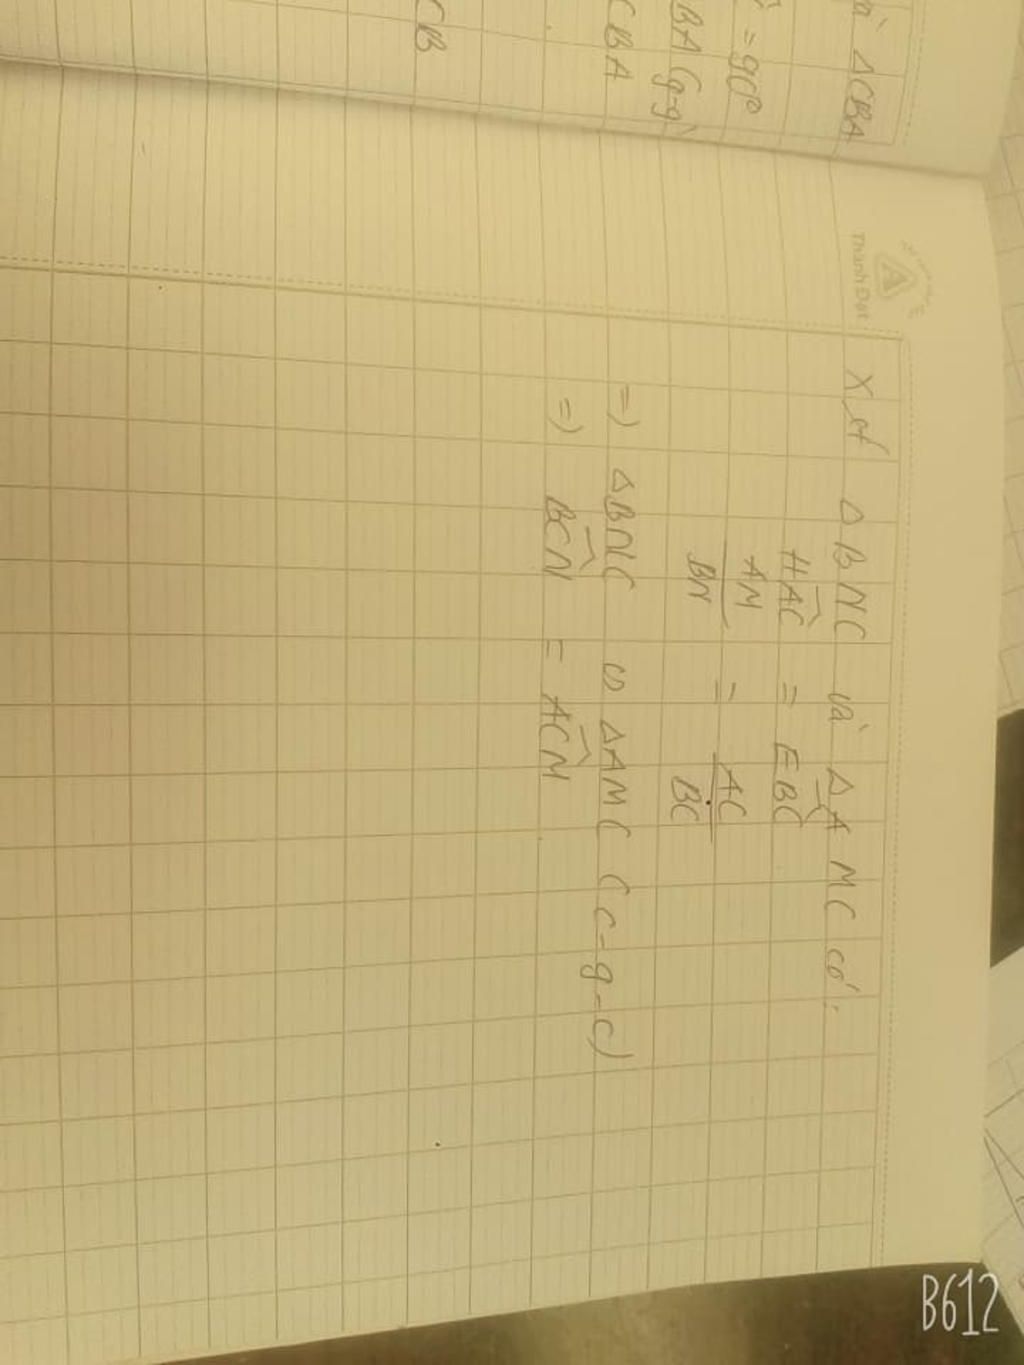 à ΔCBA
= 90°
BA (g-g)
CBA
CB
Thanh Đạt
Xét ΔBNC và ΔAMC có:
HAC = EBC
AM/BN = AC/BC
=) ΔBNC ∽ ΔAMC (c-g-c)
=) BCN = ACM
B612